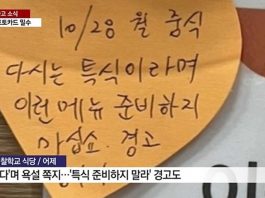 고 소식
포토카드 일수
10/28 월 중식
다시는 특식이라며
이런 메뉴 준비하지
마십쇼. 경고
찰학교 식당 / 어제
다'며 욕설 쪽지…'특식 준비하지 말라' 경고도